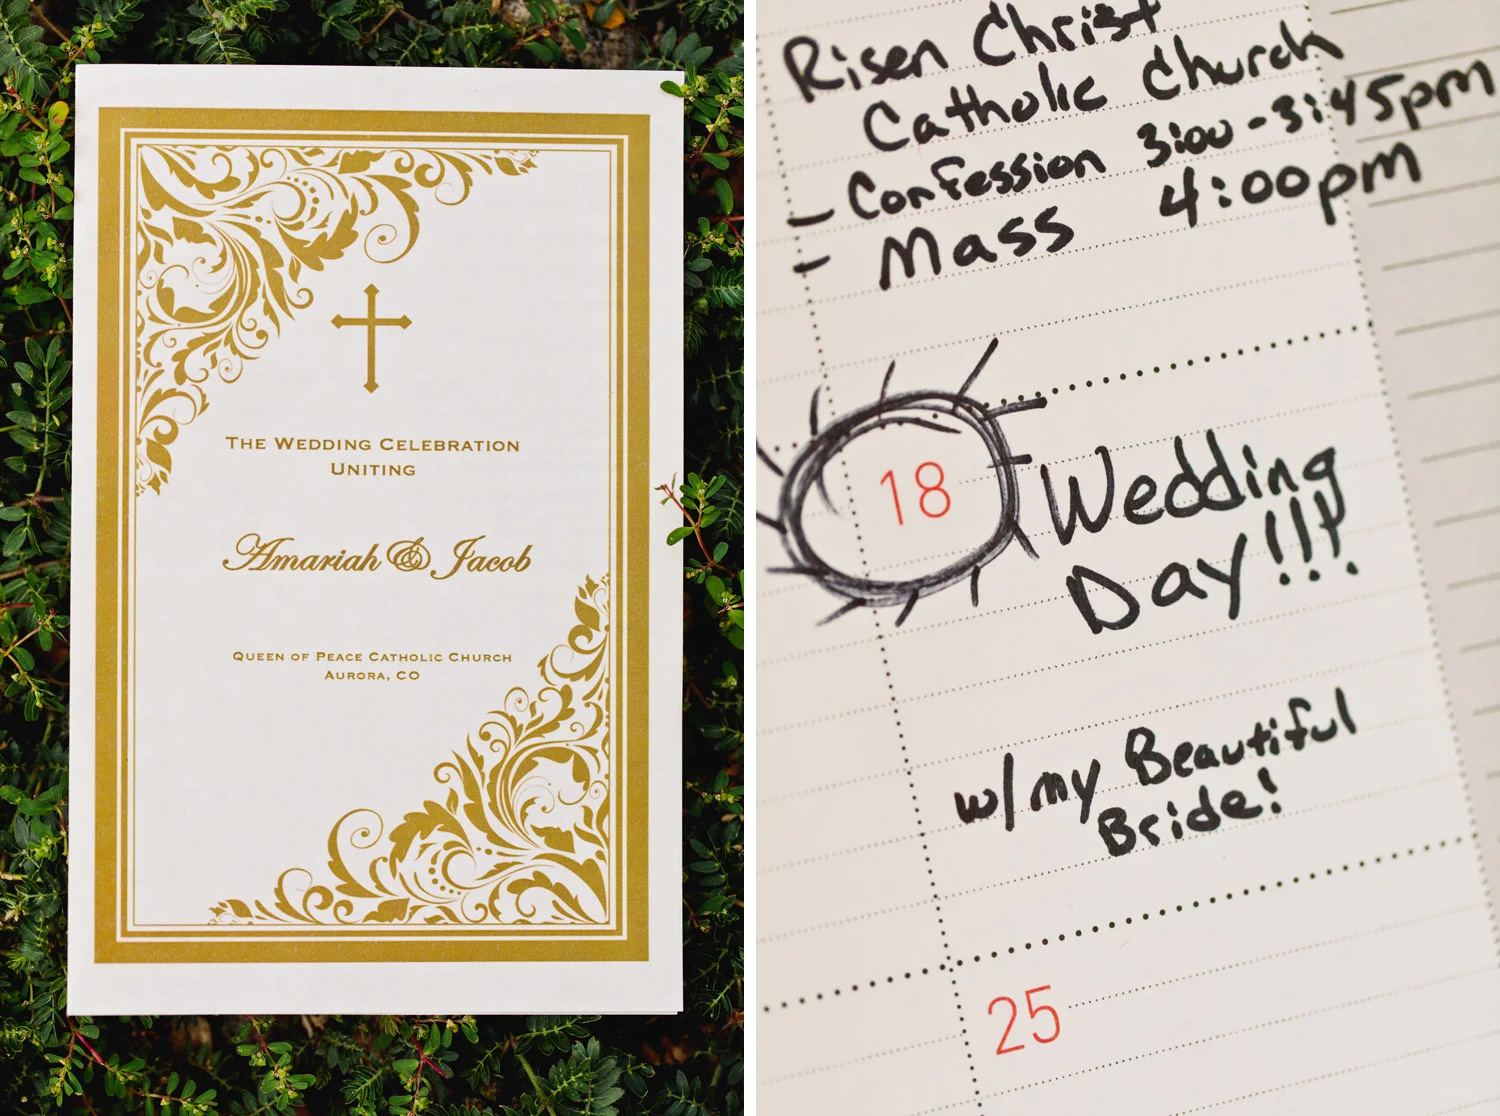 THE WEDDING CELEBRATION
UNITING
Amariah & Jacob
QUEEN OF PEACE CATHOLIC CHURCH
AURORA, CO
Risen Christ
Catholic Church
- Confession 3:00-3:45pm
- Mass 4:00pm
18 Wedding
Day!!!
w/ my Beautiful
Bride!
25